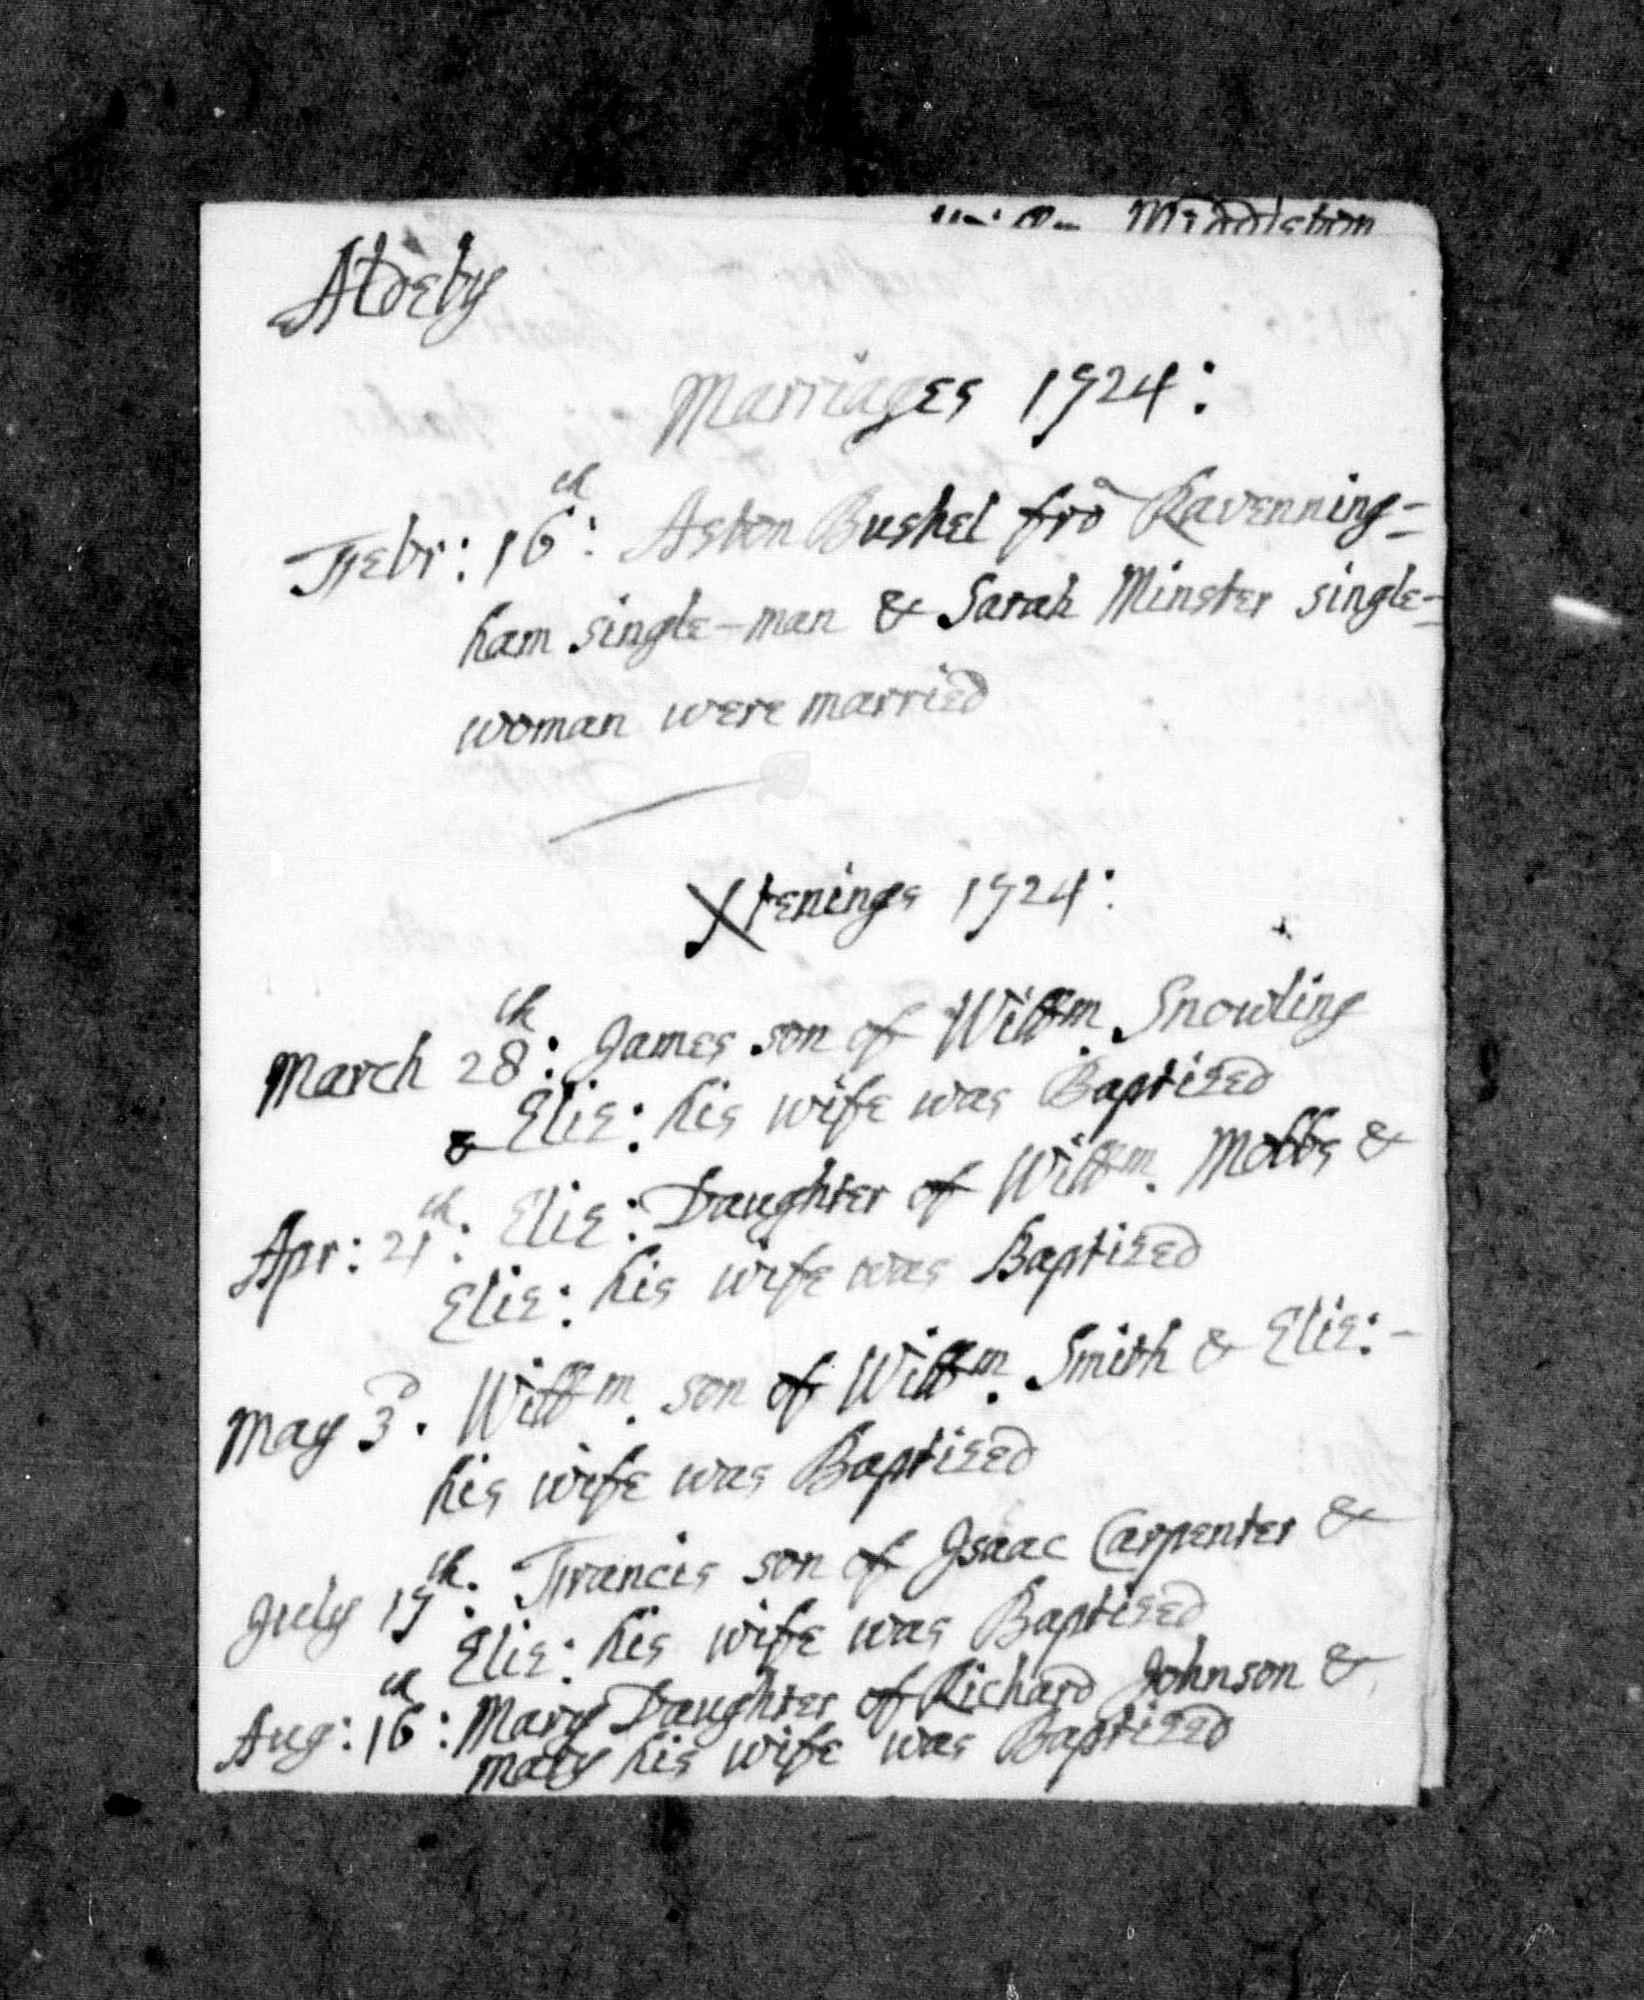 Middleton
Aldeby
Marriages 1724:
ffebr: 16th: Aston Bushel frõ Ravenning=
ham single-man & Sarah Minster single=
woman were married
Xtenings 1724:
March 28th: James son of Willm. Snowling
& Eliz: his wife was Baptized
Apr: 21th: Eliz: Daughter of Willm. Mobbs &
Eliz: his wife was Baptized
May 3d. Willm. son of Willm. Smith & Eliz: -
his wife was Baptized
July 17th: ffrancis son of Isaac Carpenter &
Eliz: his wife was Baptized
Aug: 16th: Mary Daughter of Richard Johnson &
Mary his wife was Baptized